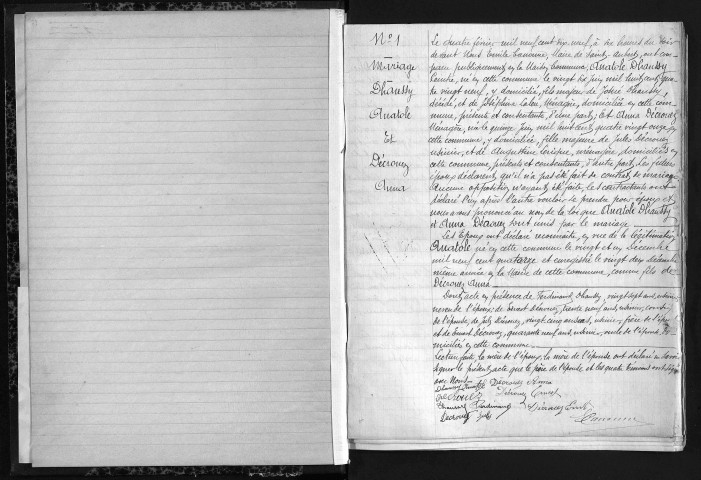 N° 1
Mariage
Dhaussy
Anatole
Et
Décrouez
Anna
Le quatre février mil neuf cent dix neuf, à dix heures du
devant Nous Emile Canonne, Maire de Saint-Aubert, ont com-
paru publiquement en la Maison Commune, Anatole Dhaussy
né en cette commune le vingt six Juin mil huit cent qua-
tre vingt neuf, y domicilié, fils majeur de Dhaussy
décédé, et de Ménagère, domiciliée en cette com-
mune, présente et consentante, d'une part; Et Anna Décrouez
Ménagère, née le quinze Juin mil huit cent quatre vingt onze en
cette commune, y domiciliée, fille majeure de Jules Décrouez
et de Augustine ménagère, domiciliés en
cette commune, présents et consentants, d'autre part, les futurs
époux déclarent qu'il n'a pas été fait de contrat de mariage
Aucune opposition n'ayant été faite, les contractants ont
déclaré l'un après l'autre vouloir se prendre pour époux et
nous avons prononcé au nom de la loi que Anatole Dhaussy
et Anna Décrouez sont unis par le mariage
Les Epoux ont déclaré reconnaître, en vue de la légitimation
Anatole né en cette commune le vingt et un Décembre
mil neuf cent quatorze et enregistré le vingt deux Décembre
même année en la Mairie de cette commune, comme fils de
Décrouez Anna
Dont acte en présence de Ferdinand Dhaussy, vingt sept ans,
de l'époux; de Ernest Décrouez, trente neuf ans,
de l'épouse, de Jules Décrouez, vingt cinq ans, frère de l'épouse
et de Ernest Décrouez, quarante neuf ans, oncle de l'épouse
domiciliés en cette commune
Lecture faite la mère de l'époux, la mère de l'épouse ont déclaré ne savoir
signer le présent acte que le père de l'épouse et les quatre témoins ont signé
avec Nous
Dhaussy Anatole Décrouez Anna
Décrouez Décrouez Ernest
Dhaussy Ferdinand Décrouez Ernest
Decrouez Jules Canonne